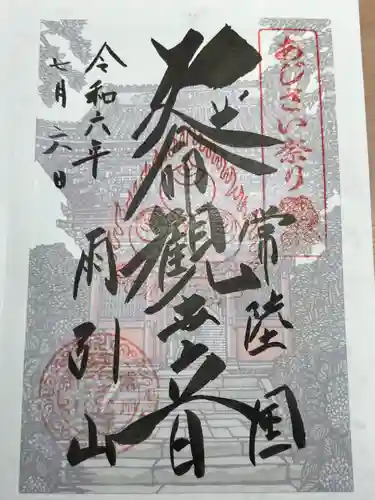 あじさい祭り
常陸国
延命観世音
雨引山
令和六年
七月六日